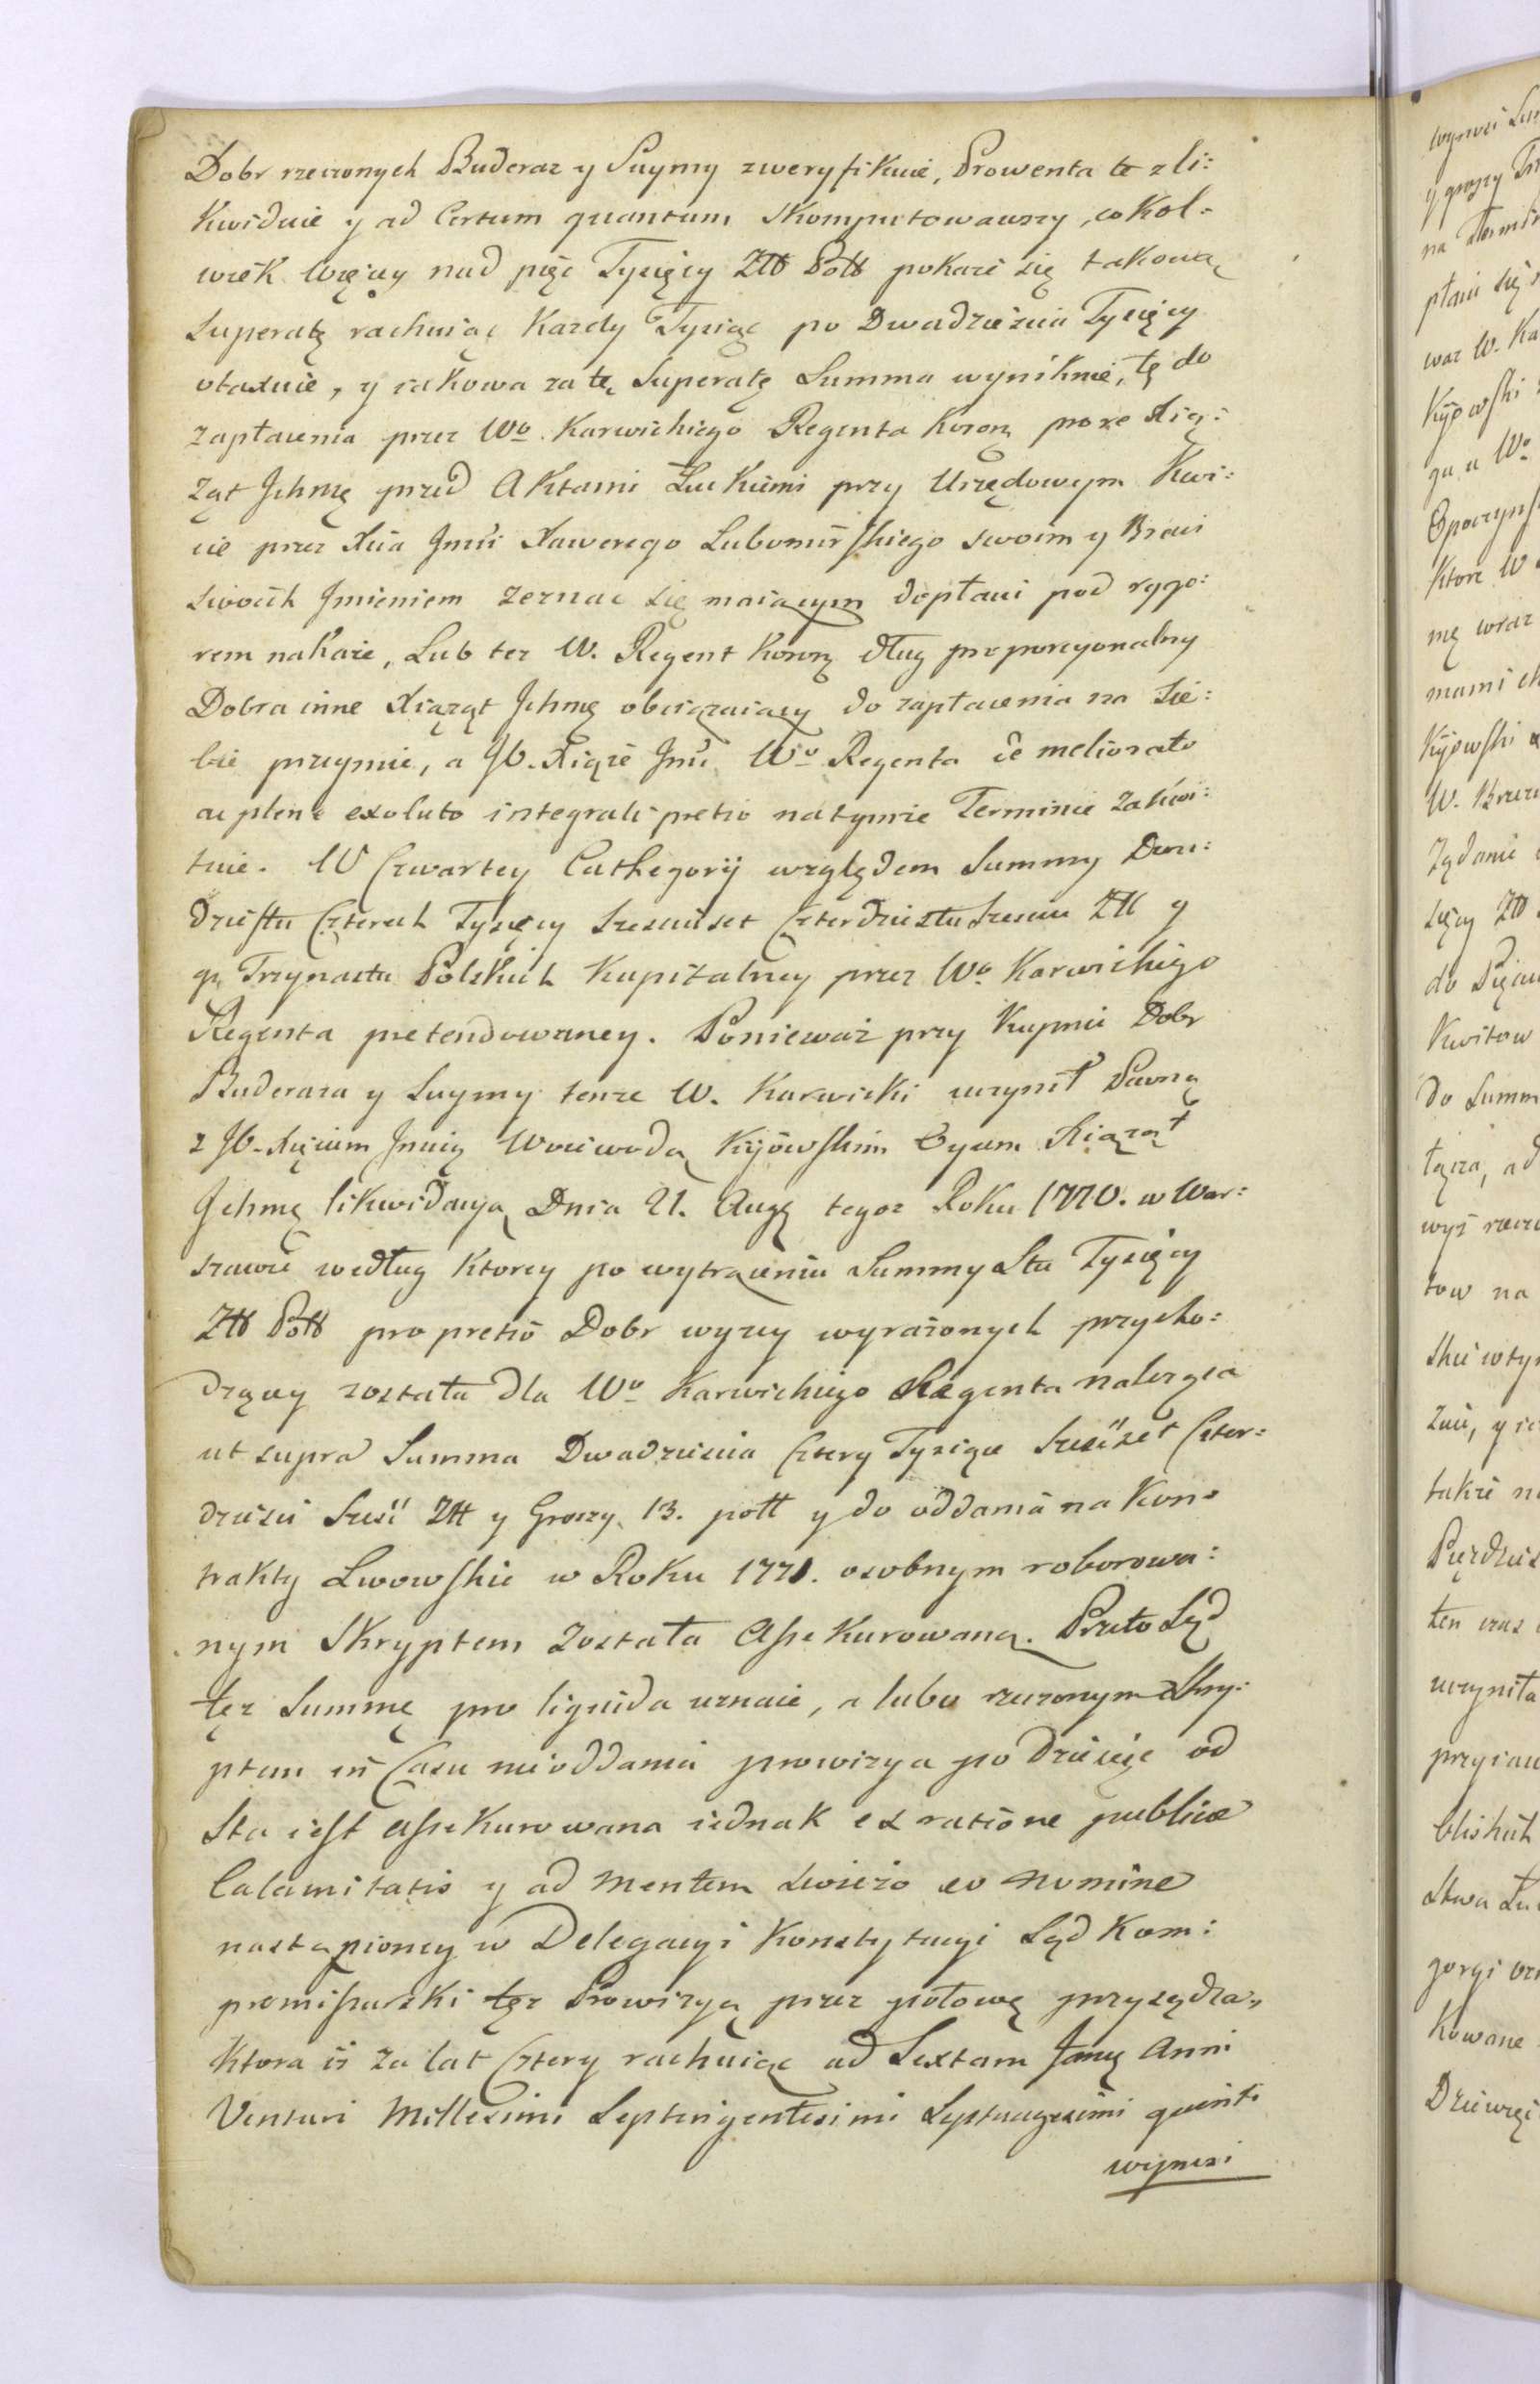 Dobr rzeczonych Buderaz y Suymy zweryfikuie, Prowenta te zli:
kwiduie y ad Certum quantum skomputowawszy, cokol=
wiek więcey nad pięc Tysięcy Złł Poll pokaże się takową
Superatę rachuiąc Kazdy Tysiąc po Dwadzieścia Tysięcy
otaxuie, y iakowa za tę Superatę Summa wyniknie, tę do
zapłacenia przez Wo Karwickiego Regenta Koronę Xią:
żąt Ichmę przed Aktami Łuckiemi przy Urzędowym Kwi:
cie przez Xcia Jmći Xawerego Lubomirskiego swoim y Braci
swoich Imieniem zeznać się maiącym dopłaci pod rygo:
rem nakaże, Lub tez W. Regent Koronę dług proporcyonalny
Dobra inne Xiążąt Ichmę obciązaiący do zapłacenia na Sie:
bie przyimie, a JO. Xiąże Jmć Wo Regenta de meliorato
ac plene exoluto integrali pretio natymże Terminie zakwi:
tuie. W Czwartey Cathegorij względem Summy Dwu:
dziestu Czterech Tysięcy Szesciuset Czterdziestu Szesciu Złł y
gr. Trzynastu Polskich Kapitalney przez Wo Karwickiego
Regenta pretendowaney. Ponieważ przy Kupnie Dobr
Buderaza y Suymy tenze W. Karwicki uczynił Pewną
z JO. Xięciem Jmcią Woiewodą Kijowskim Oycem Xiążąt
Ichmę likwidacyą Dnia 21. Augę tegoz Roku 1770. w War:
szawie według ktorey po wytrąceniu Summy Stu Tysięcy
Złł Poll pro pretio Dobr wyzey wyrażonych przycho:
dzącey została dla Wo Karwickiego Regenta naleząca
ut supra Summa Dwadziescia Cztery Tysiące Szesćset Czter:
dziesci Szesć Złł y Groszy 13. poll y do oddania na Kon=
trakty Lwowskie w Roku 1771. osobnym roborowa:
nym Skryptem została Assekurowaną. Przeto Sąd
tęz Summę pro liquida uznaie, a lubo rzeczonym Skry:
ptem in Casu nieoddania prowizya po dziesięć od
Sta iest assekurowana iednak ex ratione publicæ
Calamitatis y ad mentem swieżo eo nomine
nastąpioney w Delegacyi Konstytucyi Sąd Kom:
promissarski tęz Prowizyą przez połowę przysądza,
ktora iż za lat Cztery rachuiąc ad Sextam Janę Anni
Venturi Millesimi Septingentesimi Septuagesimi quinti
wynosi